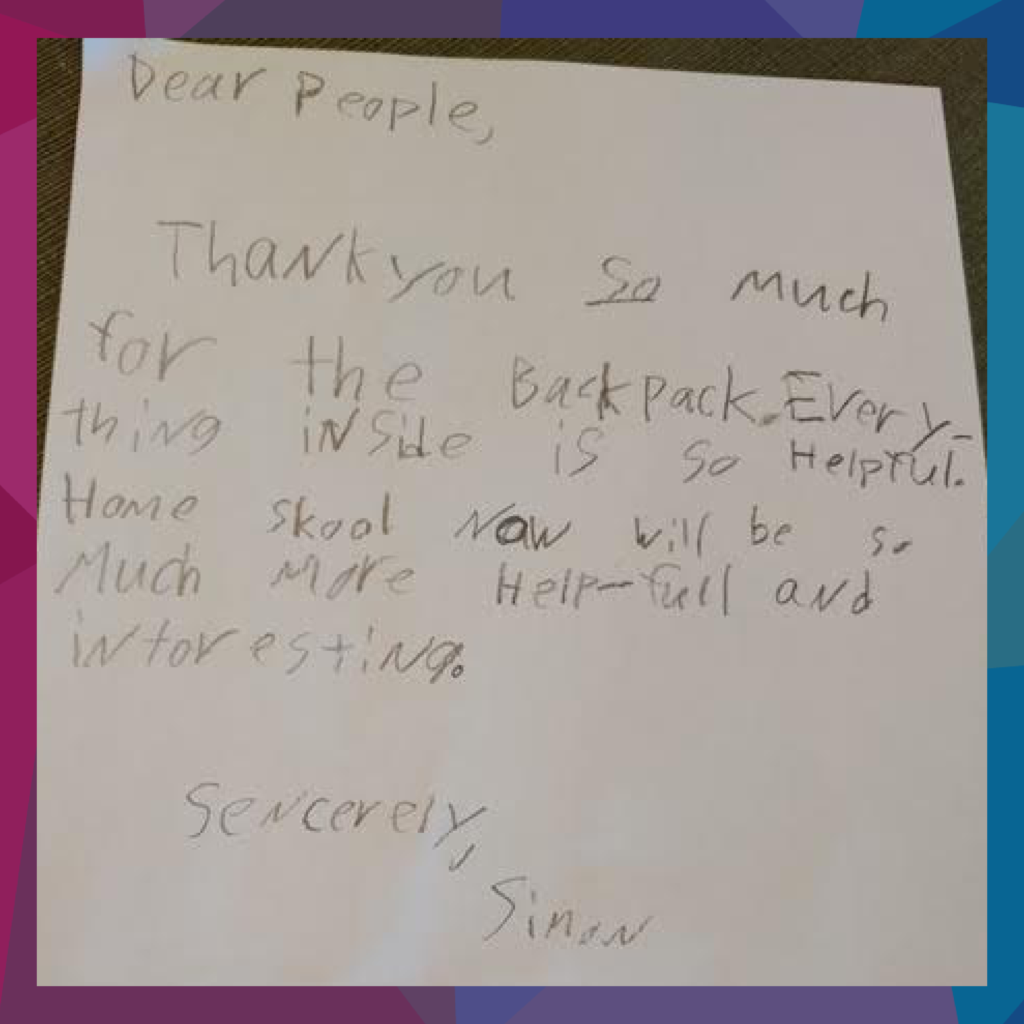 Dear People,
Thankyou So Much
for the BackPack. Every-
thing inside is so Helpful.
Home skool Now will be so
Much More Help-full and
intoresting.
Sencerely,
Simon